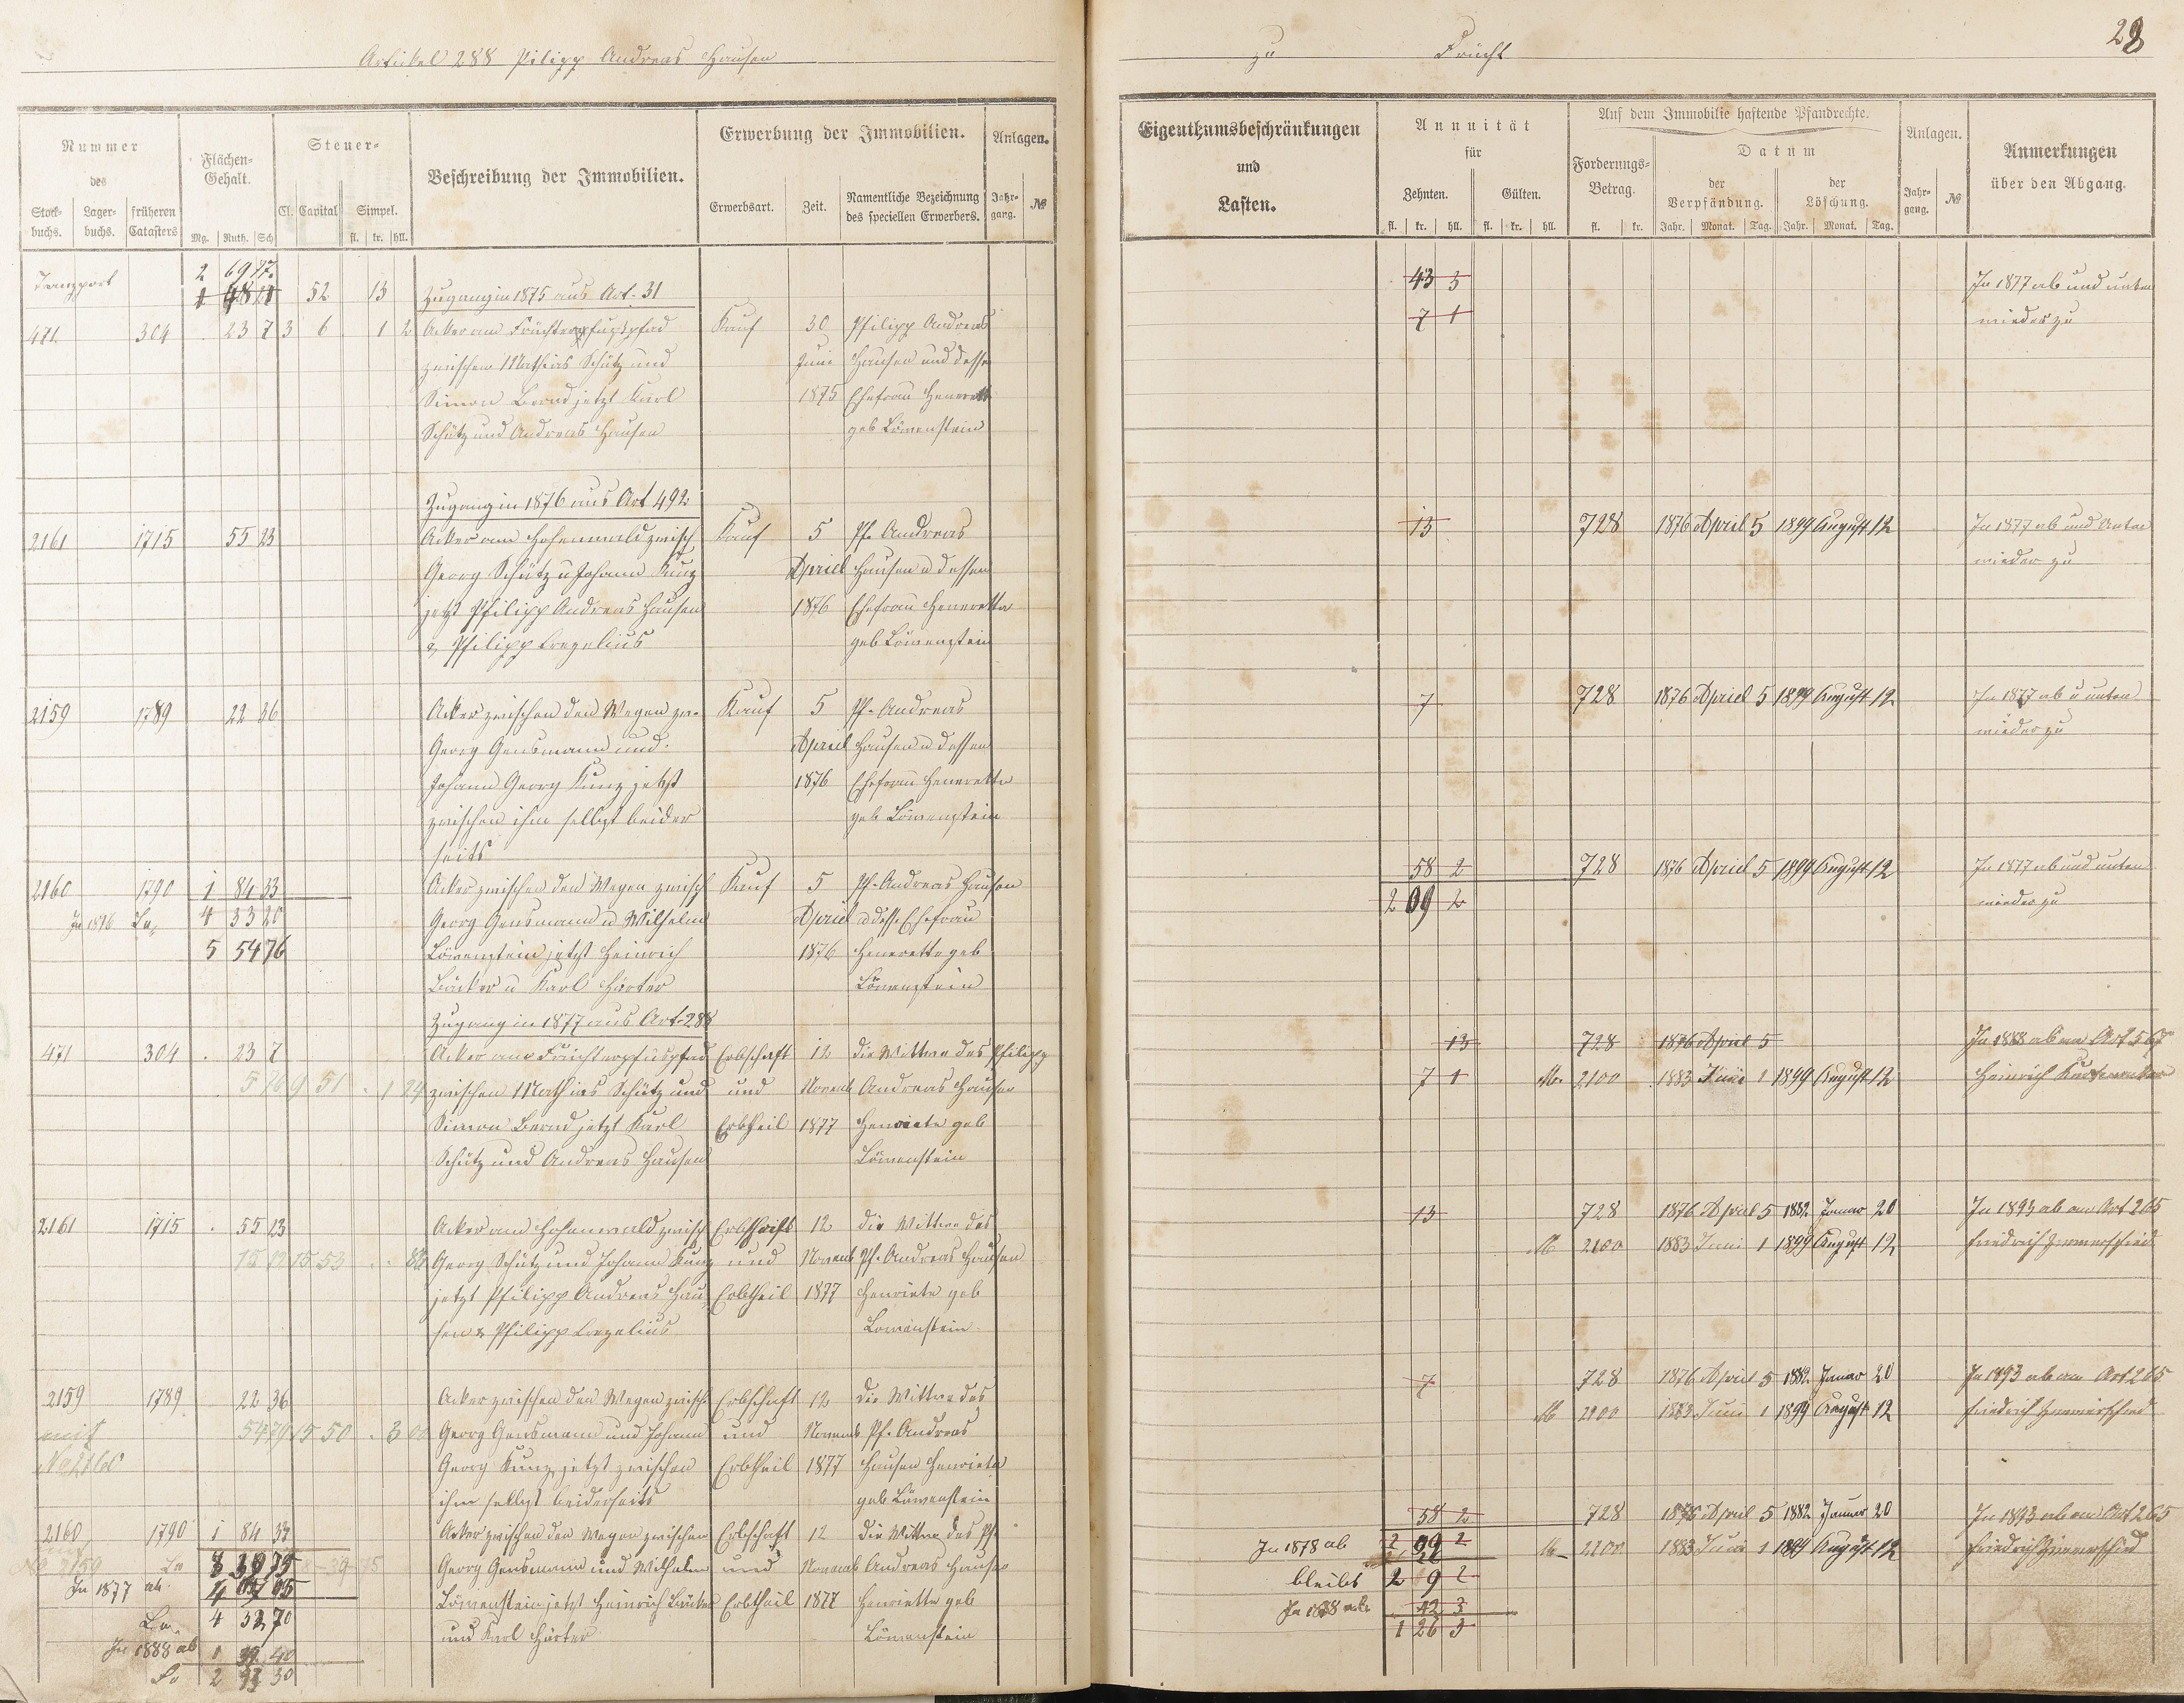 Artikel 288 Pilipp Andreas Hausen
zu Frücht
28
Nummer des
Stock-buchs. Lager-buchs. früheren Catasters
Flächen-Gehalt.
Mg. Ruth. Sch
Steuer-
Cl. Capital Simpel.
fl. kr. hll.
Beschreibung der Immobilien.
Erwerbung der Immobilien.
Erwerbsart. Zeit. Namentliche Bezeichnung des speciellen Erwerbers.
Anlagen.
Jahr-gang. №
Eigenthumsbeschränkungen und Lasten.
Annuität für
Zehnten. Gülten.
fl. kr. hll. fl. kr. hll.
Auf dem Immobilie haftende Pfandrechte.
Forderungs-Betrag.
fl. kr.
Datum
der Verpfändung. der Löschung.
Jahr. Monat. Tag. Jahr. Monat. Tag.
Anlagen.
Jahr-gang. №
Anmerkungen über den Abgang.
Transport 2 69 77
52 13 Zugang in 1875 aus Art. 31 43 3 In 1877 ab und unten
471 304 23 7 3 6 1 2 Acker am Früchterpfuhlspfad Kauf 30 Philipp Andreas 7 1 wieder zu
zwischen Mathias Schütz und Juni Hausen und dessen
Simon Bernd jetzt Karl 1875 Ehefrau Henerette
Schütz und Andreas Hausen geb Löwenstein
Zugang in 1876 aus Art 492
2161 1715 55 23 Acker am Hohenwald zwisch Kauf 5 Ph. Andreas 13 728 1876 April 5 1899 August 12 In 1877 ab und unten
Georg Schütz u Johann Kunz Apriel Hausen u dessen wieder zu
jetzt Philipp Andreas Hausen 1876 Ehefrau Henerette
& Philipp Corzelius geb Löwenstein
2159 1789 22 36 Acker zwischen den Wegen zw. Kauf 5 Ph. Andreas 7 728 1876 Apriel 5 1899 August 12 In 1877 ab u unten
Georg Gensmann und Apriel Hausen u dessen wieder zu
Johann Georg Kunz jetzt 1876 Ehefrau Henerette
zwischen ihm selbst beider geb Löwenstein
seits
2160 1790 1 84 33 Acker zwischen den Wegen zwisch Kauf 5 Ph. Andreas Hausen 58 2 728 1876 Apriel 5 1899 August 12 In 1877 ab und unten
In 1876 4 33 20 Georg Gensmann u Wilhelm Apriel u dess. Ehefrau 2 09 2 wieder zu
5 54 76 Löwenstein jetzt Heinrich 1876 Henerette geb
Bäcker u Karl Härter Löwenstein
Zugang in 1877 aus Art. 288
471 304 23 7 Acker am Früchterpfuhlspfad Erbschaft 12 die Wittwe des Philipp 13 728 1876 April 5 In 1888 ab an Art 567
5 76 9 51 1 24 zwischen Mathias Schütz und und Novemb Andreas Hausen 7 1 M. 2100 1883 Juni 1 1899 August 12 Heinrich
Simon Bernd jetzt Karl Erbtheil 1877 Henriete geb
Schütz und Andreas Hausen Löwenstein
2161 1715 55 23 Acker am Hohenwald zwisch Erbschaft 12 die Wittwe des 13 728 1876 April 5 1882 Januar 20 In 1893 ab an Art 265
15 53 Georg Schütz und Johann Kunz und Novemb Ph. Andreas Hausen M 2100 1883 Juni 1 1899 August 12 Friedrich Zimmerschied
jetzt Philipp Andreas Hau Erbtheil 1877 Henriete geb
sen & Philipp Corzelius Löwenstein
2159 1789 22 36 Acker zwischen den Wegen zwisch Erbschaft 12 die Wittwe des 7 728 1876 April 5 1882 Januar 20 In 1893 ab an Art 265
mit 54 79 15 50 3 00 Georg Gensmann und Johann und Novemb Ph. Andreas M 2100 1883 Juni 1 1899 August 12 Friedrich Zimmerschied
No 2160 Georg Kunz jetzt zwischen Erbtheil 1877 Hausen Henriete
ihm selbst beiderseits geb Löwenstein
2160 1790 1 84 33 Acker zwischen den Wegen zwischen Erbschaft 12 die Wittwe des Ph. 58 2 728 1876 April 5 1882 Januar 20 In 1893 ab an Art 265
No 2159 8 39 75 Georg Gensmann und Wilhelm und Novemb Andreas Hausen In 1878 ab 2 09 2 M 2100 1883 Juni 1 1899 August 12 Friedrich Zimmerschied
In 1877 ab 4 Löwenstein jetzt Heinrich Bäcker Erbtheil 1877 Henriette geb bleibt 2 9 2
4 32 70 und Karl Härter Löwenstein In 1888 42 3
In 1888 ab 1 39 40 1 26 3
2 93 30